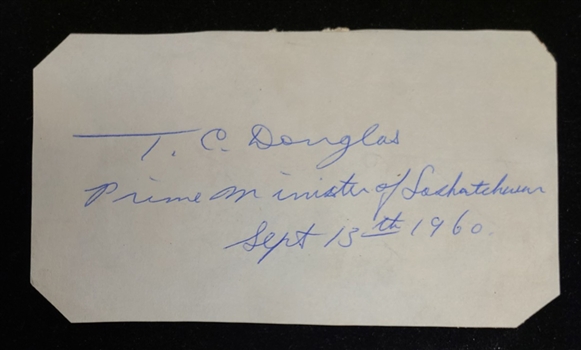 T. C. Douglas
Prime Minister of Saskatchewan
Sept 13th 1960.